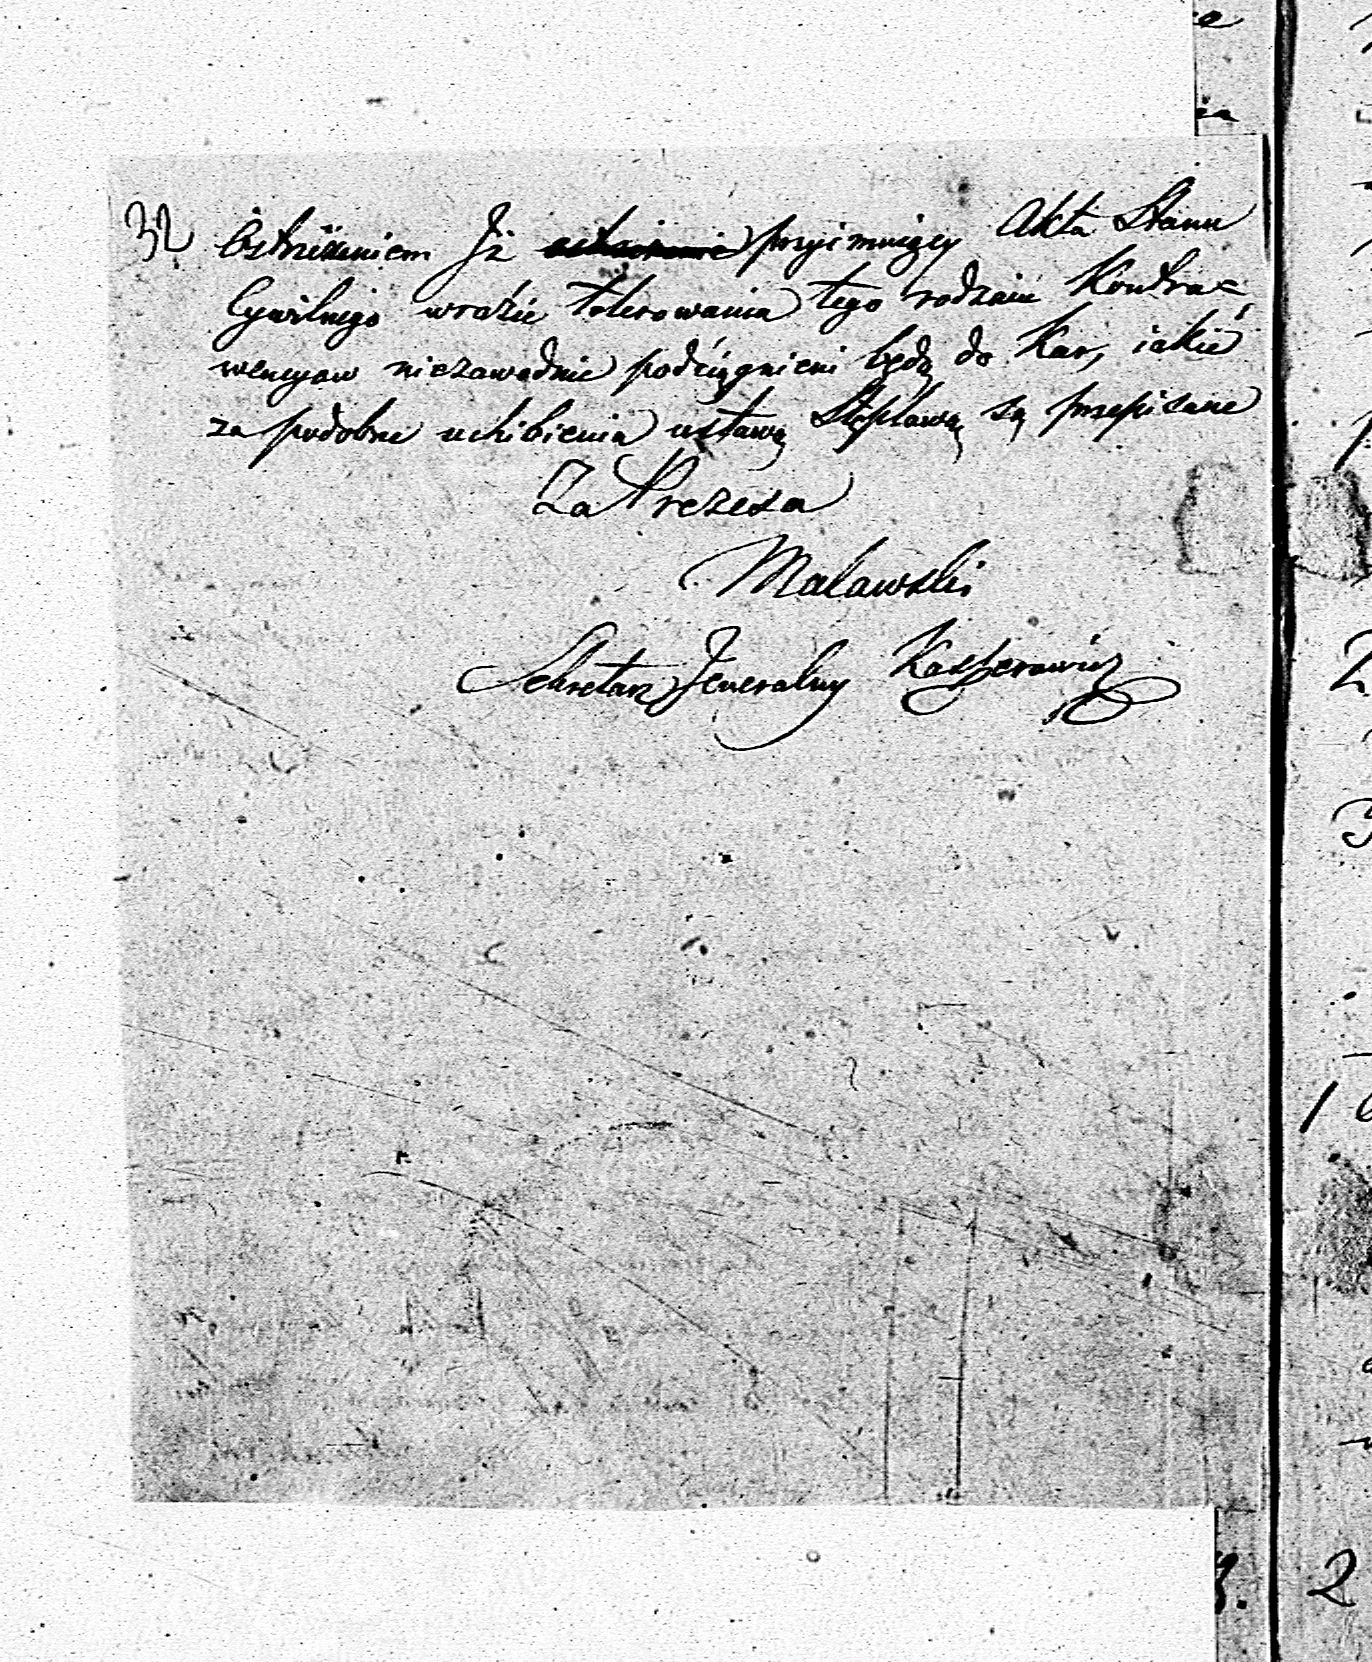 32 Ostrzeżeniem Iż przyimuiący Akta Stanu
Cywilnego wrazie tolerowania tego rodzaiu Kontra=
wencyow niezawodnie podciągnieni będą do Kar, iakie
za podobne uchibienia ustawą Stęplową są przepisane
Za Prezesa
Malawski
Sekretarz Jeneralny Kasperowicz